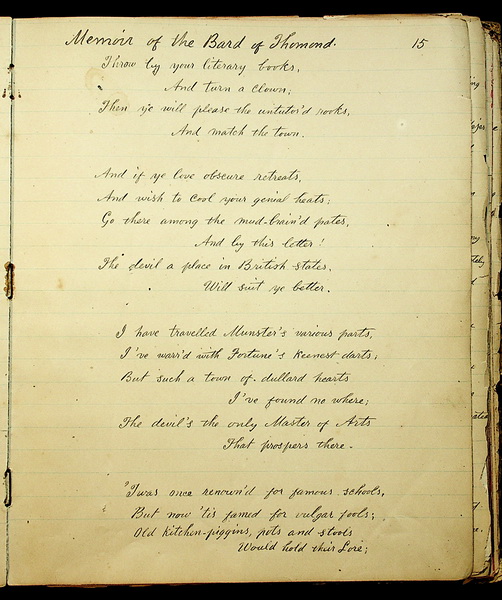 Memoir of the Bard of Thomond. 15
Throw by your literary books,
And turn a clown;
Then ye will please the untutor'd rooks,
And match the town.
And if ye love obscure retreats,
And wish to cool your genial heats;
Go there among the mud-brain'd pates,
And by this letter!
The devil a place in British states,
Will suit ye better.
I have travelled Munster's various parts,
I've warr'd with Fortune's keenest darts,
But such a town of dullard hearts
I've found no where;
The devil's the only Master of Arts
That prospers there -
'Twas once renown'd for famous schools,
But now 'tis famed for vulgar fools;
Old kitchen-piggins, pots and stools
Would hold their Lore;